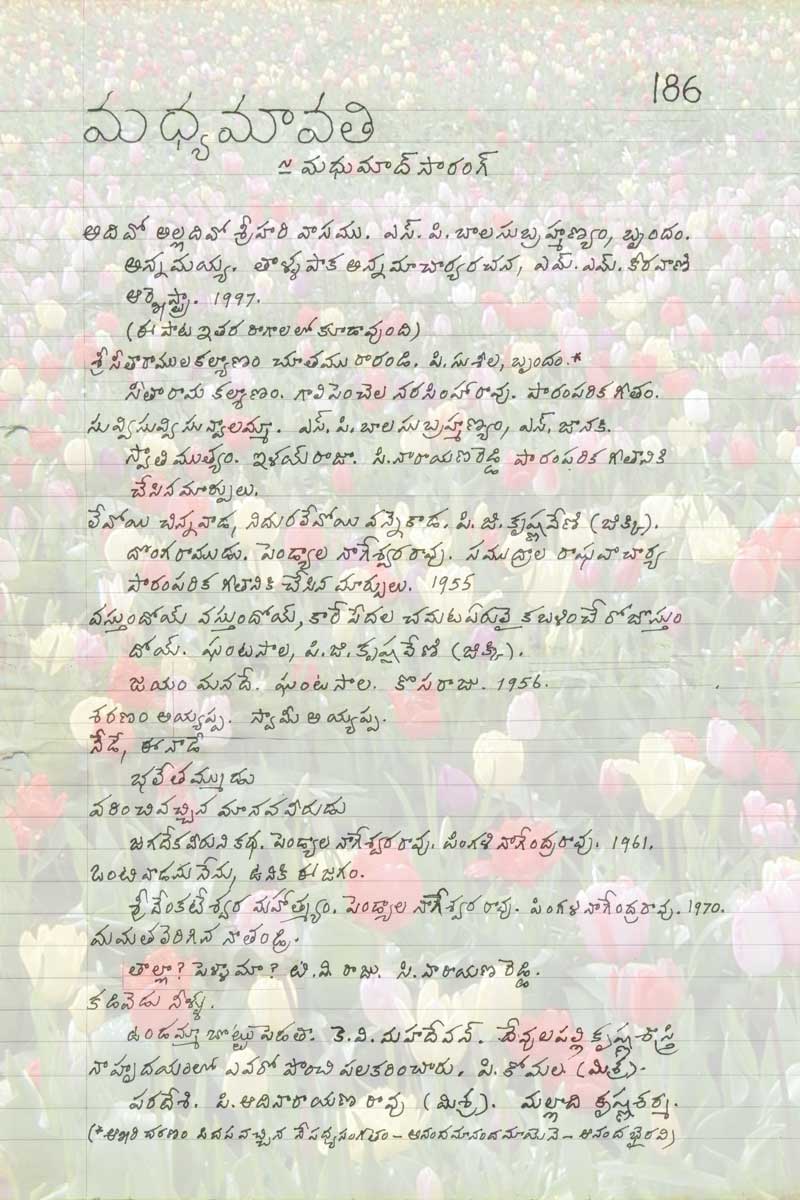 186
మధ్యమావతి
~ మధుమాద్ సారంగ్
అదివో అల్లదివో శ్రీహరి వాసము. ఎస్. పి. బాలసుబ్రహ్మణ్యం, బృందం.
అన్నమయ్య. తాళ్ళపాక అన్నమాచార్య రచన, ఎమ్. ఎమ్. కీరవాణి
ఆర్కెస్ట్రా. 1997.
(ఈ పాట ఇతర రాగాలలో కూడావుంది)
శ్రీసీతారాముల కళ్యాణం చూతము రారండి. పి. సుశీల, బృందం.*
సీతారామ కల్యాణం. గాలి పెంచల నరసింహారావు. పారంపరిక గీతం.
సువ్వి సువ్వి సువ్వాలమ్మా. ఎస్. పి. బాలసుబ్రహ్మణ్యం, ఎస్. జానకి.
స్వాతిముత్యం. ఇళయ్ రాజా. సి. నారాయణరెడ్డి పారంపరిక గీతానికి
చేసిన మార్పులు.
లేవోయి చిన్నవాడ, నిదురలేవోయి వన్నెకాడ. పి. జి. కృష్ణవేణి (జిక్కి).
దొంగరాముడు. పెండ్యాల నాగేశ్వరరావు. సముద్రాల రాఘవాచార్య
పారంపరిక గీతానికి చేసిన మార్పులు. 1955
వస్తుందోయ్ వస్తుందోయ్, కారే పేదల చెమట ఏరులై కబళించే రోజొస్తుం
దోయ్. ఘంటసాల, పి. జి. కృష్ణవేణి (జిక్కి).
జయం మనదే. ఘంటసాల. కొసరాజు. 1956.
శరణం అయ్యప్ప. స్వామీ అయ్యప్ప.
నేడే, ఈనాడే
భలే తమ్ముడు
వరించి వచ్చిన మానవవీరుడు
జగదేకవీరుని కథ. పెండ్యాల నాగేశ్వరరావు. పింగళి నాగేంద్రరావు. 1961.
ఒంటివాడను నేను, ఉనికి ఈ జగం.
శ్రీ వేంకటేశ్వర మహాత్మ్యం. పెండ్యాల నాగేశ్వరరావు. పింగళ నాగేంద్రరావు. 1970.
మమత వెరిగిన నా తండ్రి.
తాల్లా? పెళ్ళామా? టి. వి. రాజు. సి. నారాయణరెడ్డి.
కడివెడు నీళ్ళు.
ఉండమ్మా బొట్టు పెడతా. కె. వి. మహాదేవన్. దేవులపల్లి కృష్ణశాస్త్రి
నా హృదయంలో ఎవరో పొంచి పలకరించారు. పి. కోమల (మిశ్ర).
పరదేశి. పి. ఆదినారాయణ రావు (మిశ్ర). మల్లాది కృష్ణశర్మ.
(*ఆఖరి చరణం పిదప వచ్చిన నేపథ్యసంగీతం - ఆనందమానందమాయెనె - ఆనంద భైరవి)